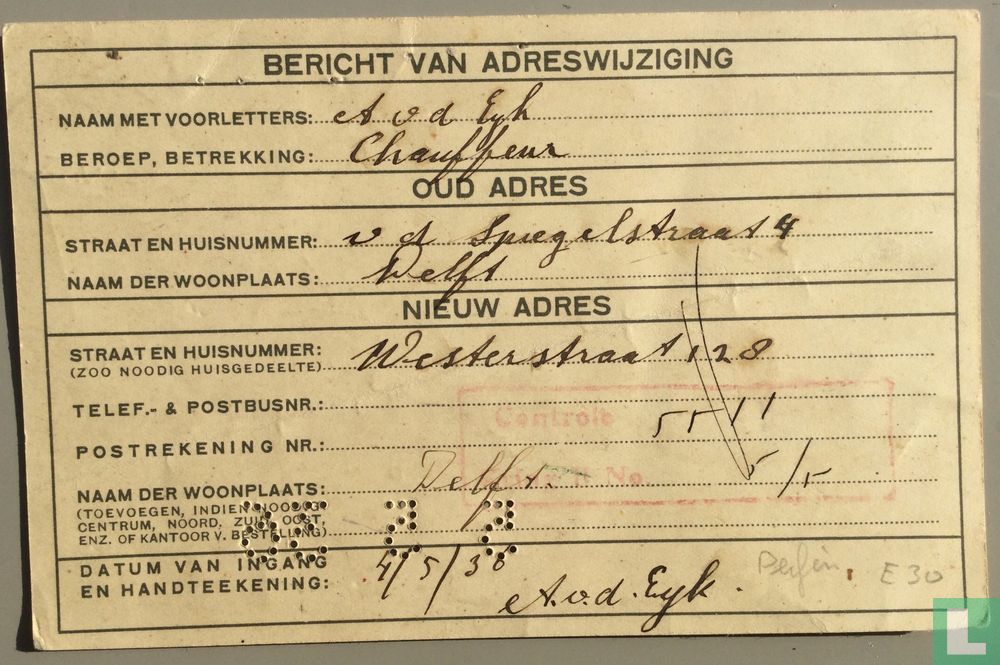 BERICHT VAN ADRESWIJZIGING
NAAM MET VOORLETTERS: A v d Eyk
BEROEP, BETREKKING: Chauffeur
OUD ADRES
STRAAT EN HUISNUMMER: v d Spiegelstraat 4
NAAM DER WOONPLAATS: Delft
NIEUW ADRES
STRAAT EN HUISNUMMER: Westerstraat 128
(ZOO NOODIG HUISGEDEELTE)
Controle
TELEF.- & POSTBUSNR.:
POSTREKENING NR.:
No.
5/5
NAAM DER WOONPLAATS: Delft.
(TOEVOEGEN, INDIEN NOODIG:
CENTRUM, NOORD, ZUID, OOST,
ENZ. OF KANTOOR V. BESTELLING)
DATUM VAN INGANG 4/5/30
EN HANDTEEKENING: A.v.d. Eyk.
Perfin, E 30
L